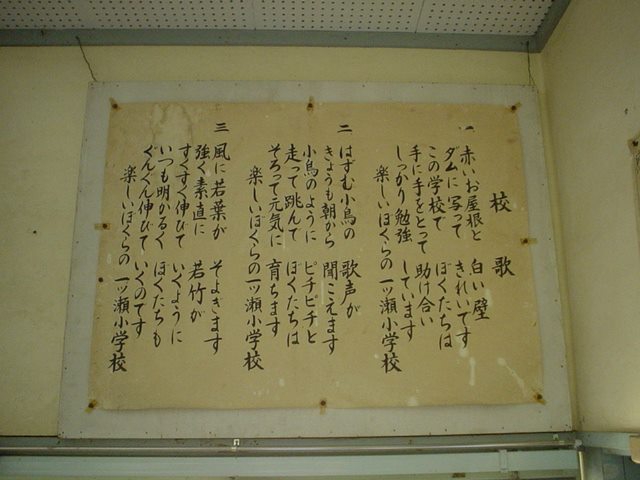 校歌
一 赤いお屋根と 白い壁
ダムに写って きれいです
この学校で ぼくたちは
手に手をとって 助け合い
しっかり勉強 しています
楽しいぼくらの 一ッ瀬小学校
二 はずむ小鳥の 歌声が
きょうも朝から 聞こえます
小鳥のように ピチピチと
走って跳んで ぼくたちは
そろって元気に 育ちます
楽しいぼくらの 一ッ瀬小学校
三 風に若葉が そよぎます
強く素直に 若竹が
すくすく伸びて いくように
いつも明かるく ぼくたちも
ぐんぐん伸びて いくのです
楽しいぼくらの 一ッ瀬小学校